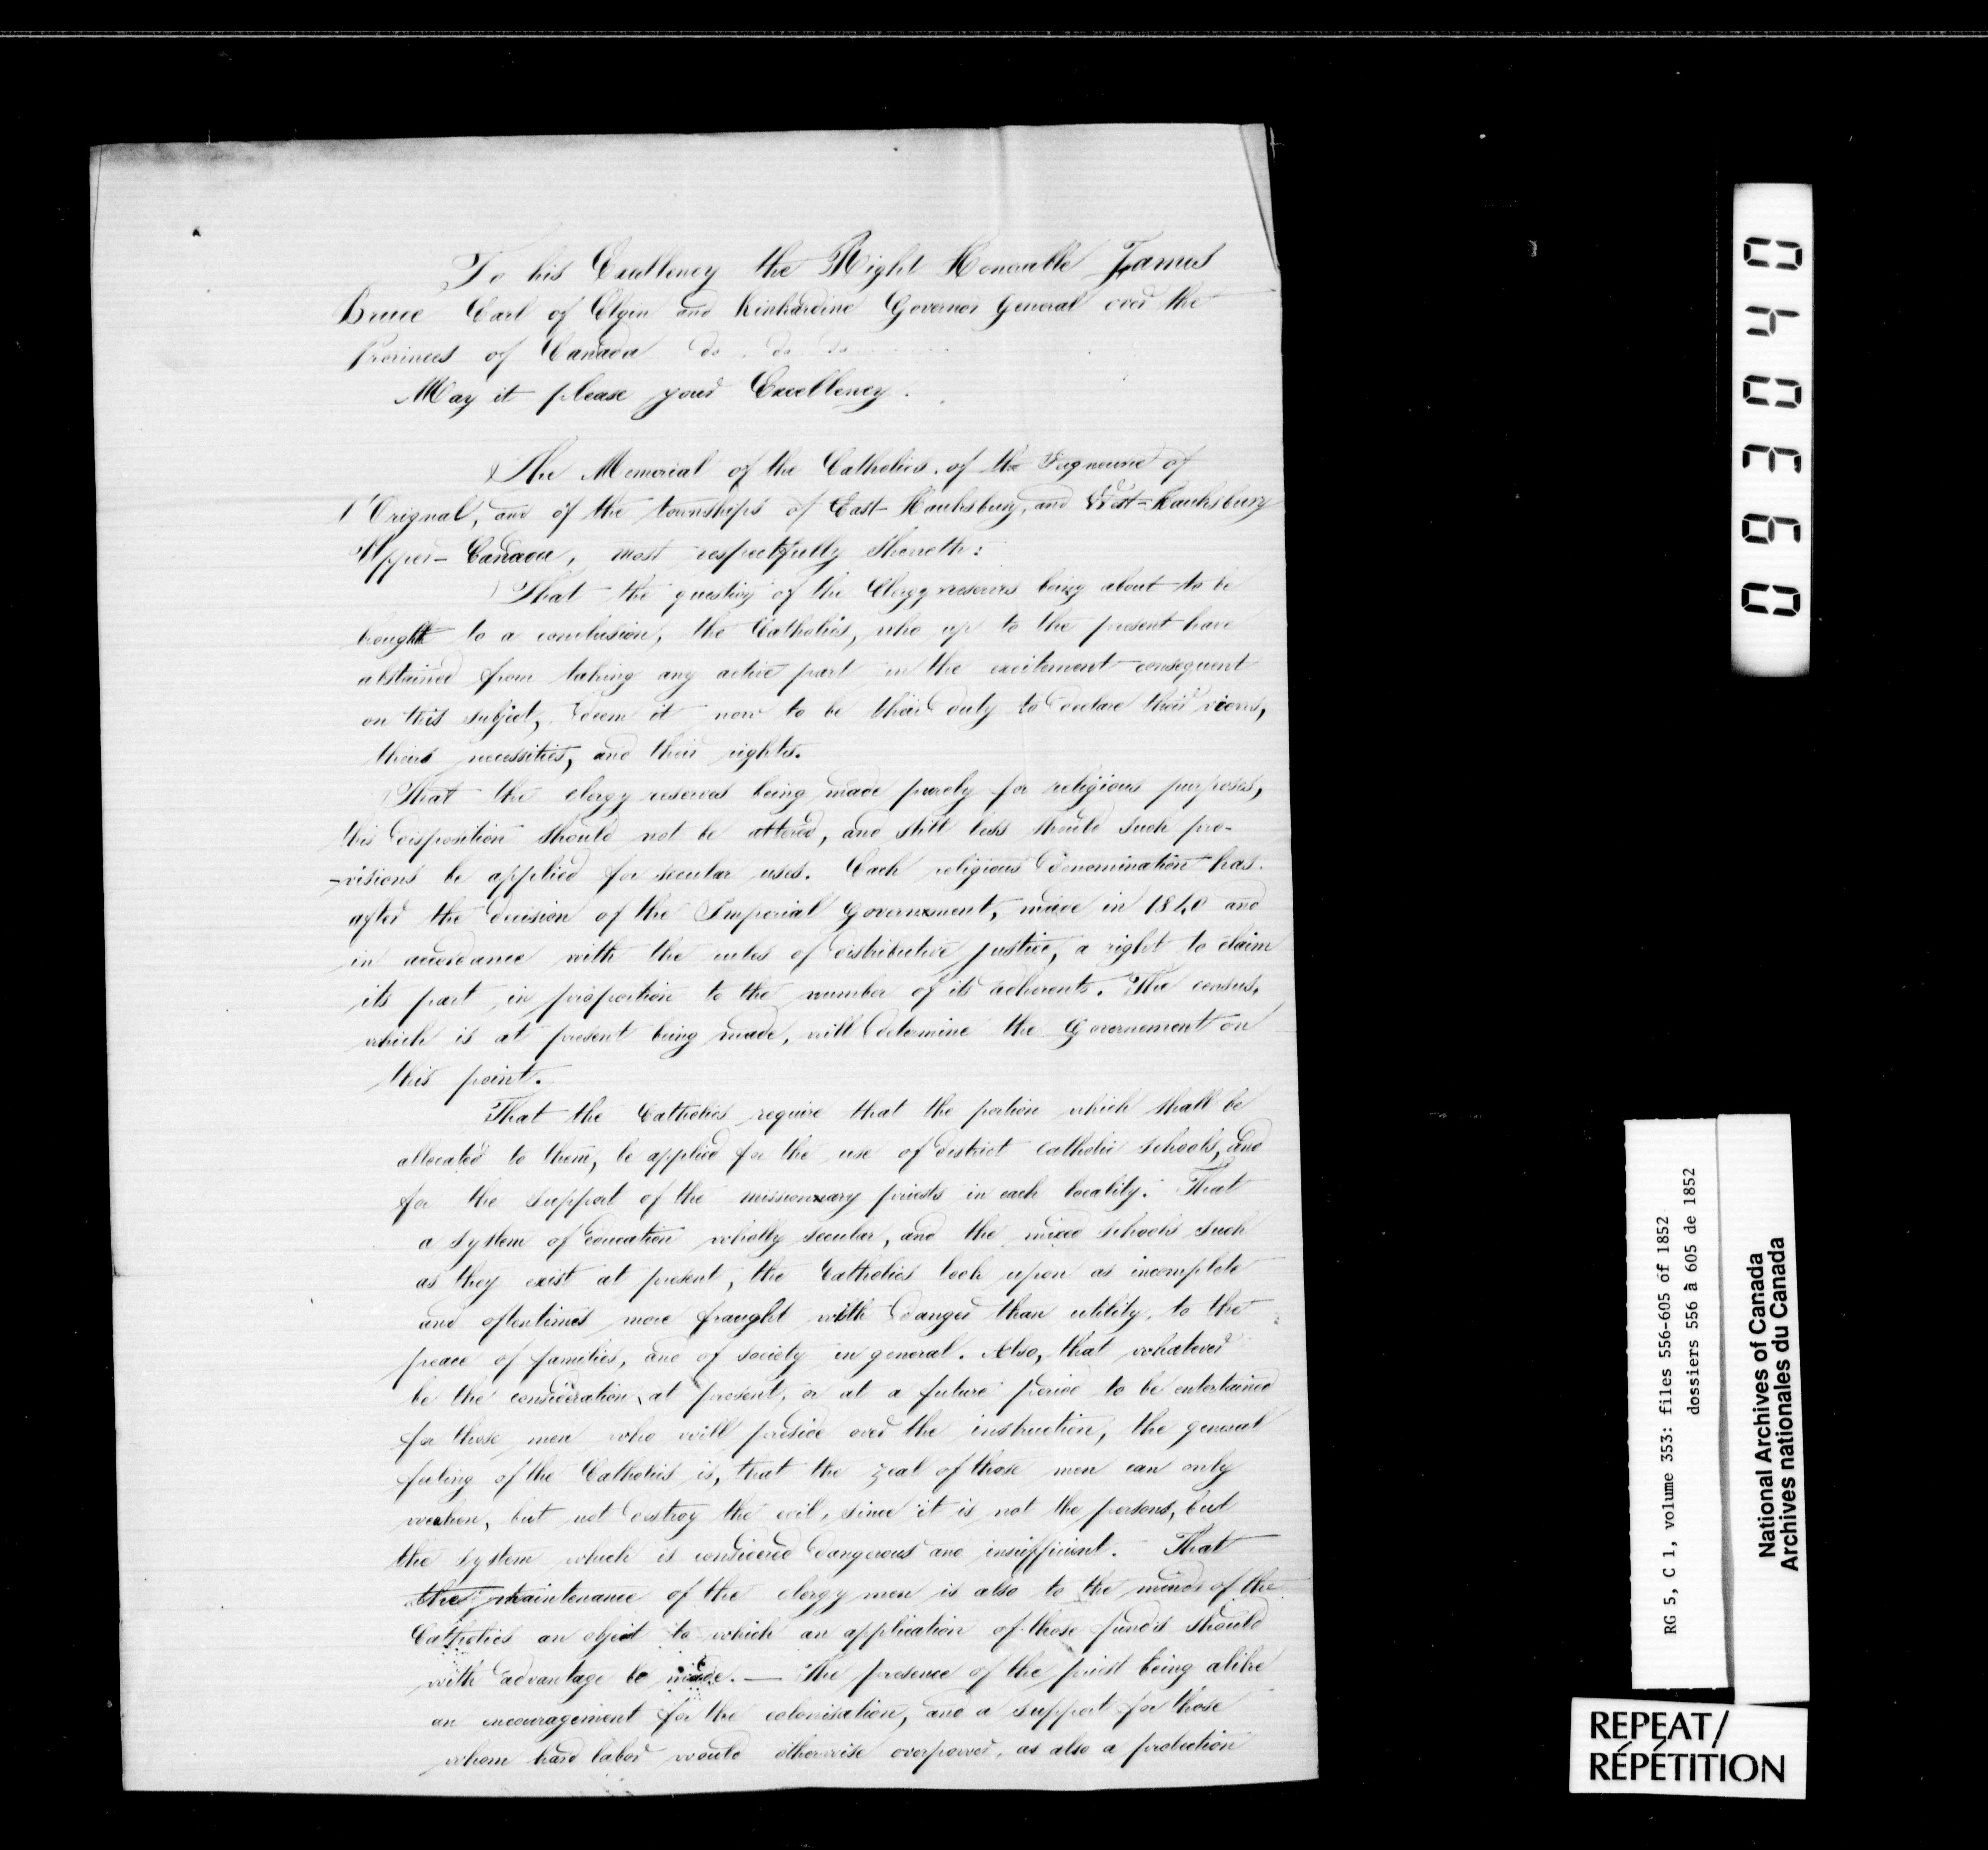 To his Excellency the Right Honorable James
Bruce Earl of Elgin and Kinkardine Governor General over the
Provinces of Canada do. do. do.
May it please your Excellency.
The Memorial of the Catholics of the Seigneurie of
l'Orignal, and of the townships of East-Hawksbury, and West-Hawksbury
Upper-Canada, most respectfully sheweth:
That the question of the Clergy reserves being about to be
brought to a conclusion, the Catholics, who up to the present have
abstained from taking any active part in the excitement consequent
on this subject, deem it now to be their duty to declare their views,
their necessities, and their rights.
That the clergy reserves being made purely for religious purposes,
this disposition should not be altered, and still less should such pro-
-visions be applied for secular uses. Each religious denomination has
after the decision of the Imperial Government, made in 1840 and
in accordance with the rules of distributive justice, a right to claim
its part in proportion to the number of its adherents. The census,
which is at present being made, will determine the Governement on
this point.
That the Catholics require that the portion which shall be
allocated to them, be applied for the use of district catholic schools, and
for the support of the missionnary priests in each locality. That
a system of education wholly secular, and the mixed schools such
as they exist at present, the Catholics look upon as incomplete
and oftentimes more fraught with danger than utility, to the
peace of families, and of society in general. Also, that whatever
be the consideration, at present, or at a future period to be entertained
for those men who will preside over the instruction, the general
feeling of the Catholics is, that the zeal of those men can only
weaken, but not destroy the evil, since it is not the persons, but
the system which is considered dangerous and insufficient. That
the maintenance of the clergy men is also to the minds of the
Catholics an object to which an application of those funds should
with advantage be made. — The presence of the priest being alike
an encouragement for the colonisation, and a support for those
whom hard labor would otherwise overpower, as also a protection
040360
RG 5, C 1, volume 353: files 556-605 of 1852
dossiers 556 à 605 de 1852
National Archives of Canada
Archives nationales du Canada
REPEAT/
RÉPÉTITION